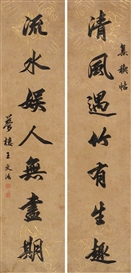 集禊帖
清風遇竹有生趣
流水娛人無盡期
夢樓王文治